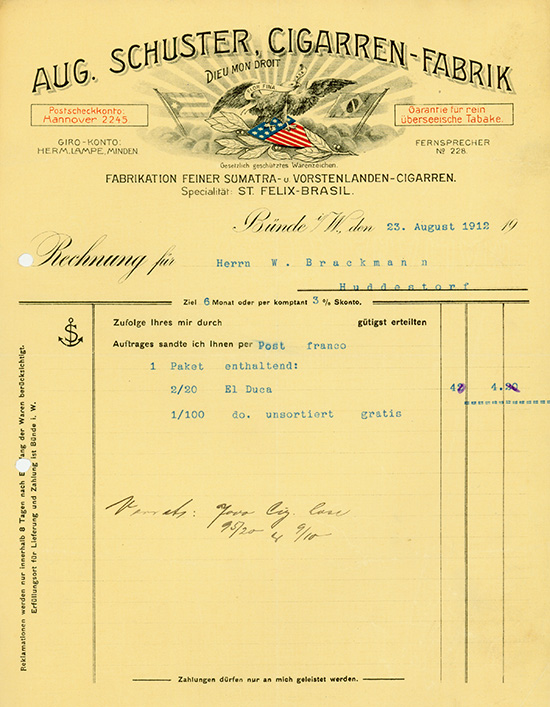 AUG. SCHUSTER, CIGARREN-FABRIK
DIEU MON DROIT
FLOR FINA
Postscheckkonto:
Hannover 2245.
Garantie für rein
überseeische Tabake.
GIRO-KONTO:
HERM. LAMPE, MINDEN.
FERNSPRECHER
No 228.
Gesetzlich geschütztes Warenzeichen.
FABRIKATION FEINER SUMATRA- u. VORSTENLANDEN-CIGARREN.
Specialität: ST. FELIX-BRASIL.
Bünde i/W., den 23. August 1912 19
Rechnung für Herrn W. Brackmann
Huddestorf
Ziel 6 Monat oder per komptant 3 % Skonto.
Zufolge Ihres mir durch gütigst erteilten
Auftrages sandte ich Ihnen per Post franco
1 Paket enthaltend:
2/20 El Duca 42 4.20
1/100 do. unsortiert gratis
Cig.
95/20 9/10
Zahlungen dürfen nur an mich geleistet werden.
Reklamationen werden nur innerhalb 8 Tagen nach Empfang der Waren berücksichtigt.
Erfüllungsort für Lieferung und Zahlung ist Bünde i. W.